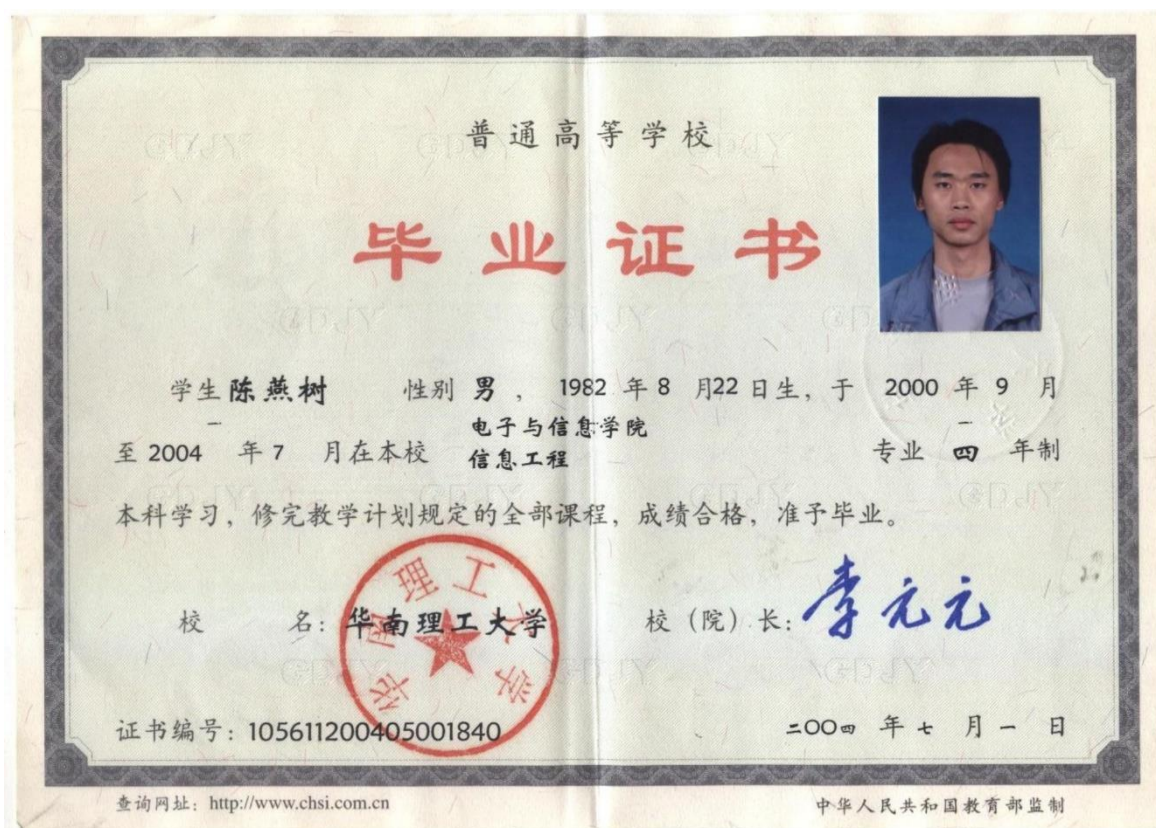 普通高等学校
毕业证书
学生 陈燕树 性别 男 , 1982 年 8 月 22 日生, 于 2000 年 9 月
电子与信息学院
至 2004 年 7 月在本校 信息工程 专业 四 年制
本科学习, 修完教学计划规定的全部课程, 成绩合格, 准予毕业。
校 名: 华南理工大学 校 (院) 长: 李元元
华南理工大学
证书编号: 105611200405001840 二〇〇四 年 七 月 一 日
查询网址: http://www.chsi.com.cn 中华人民共和国教育部监制